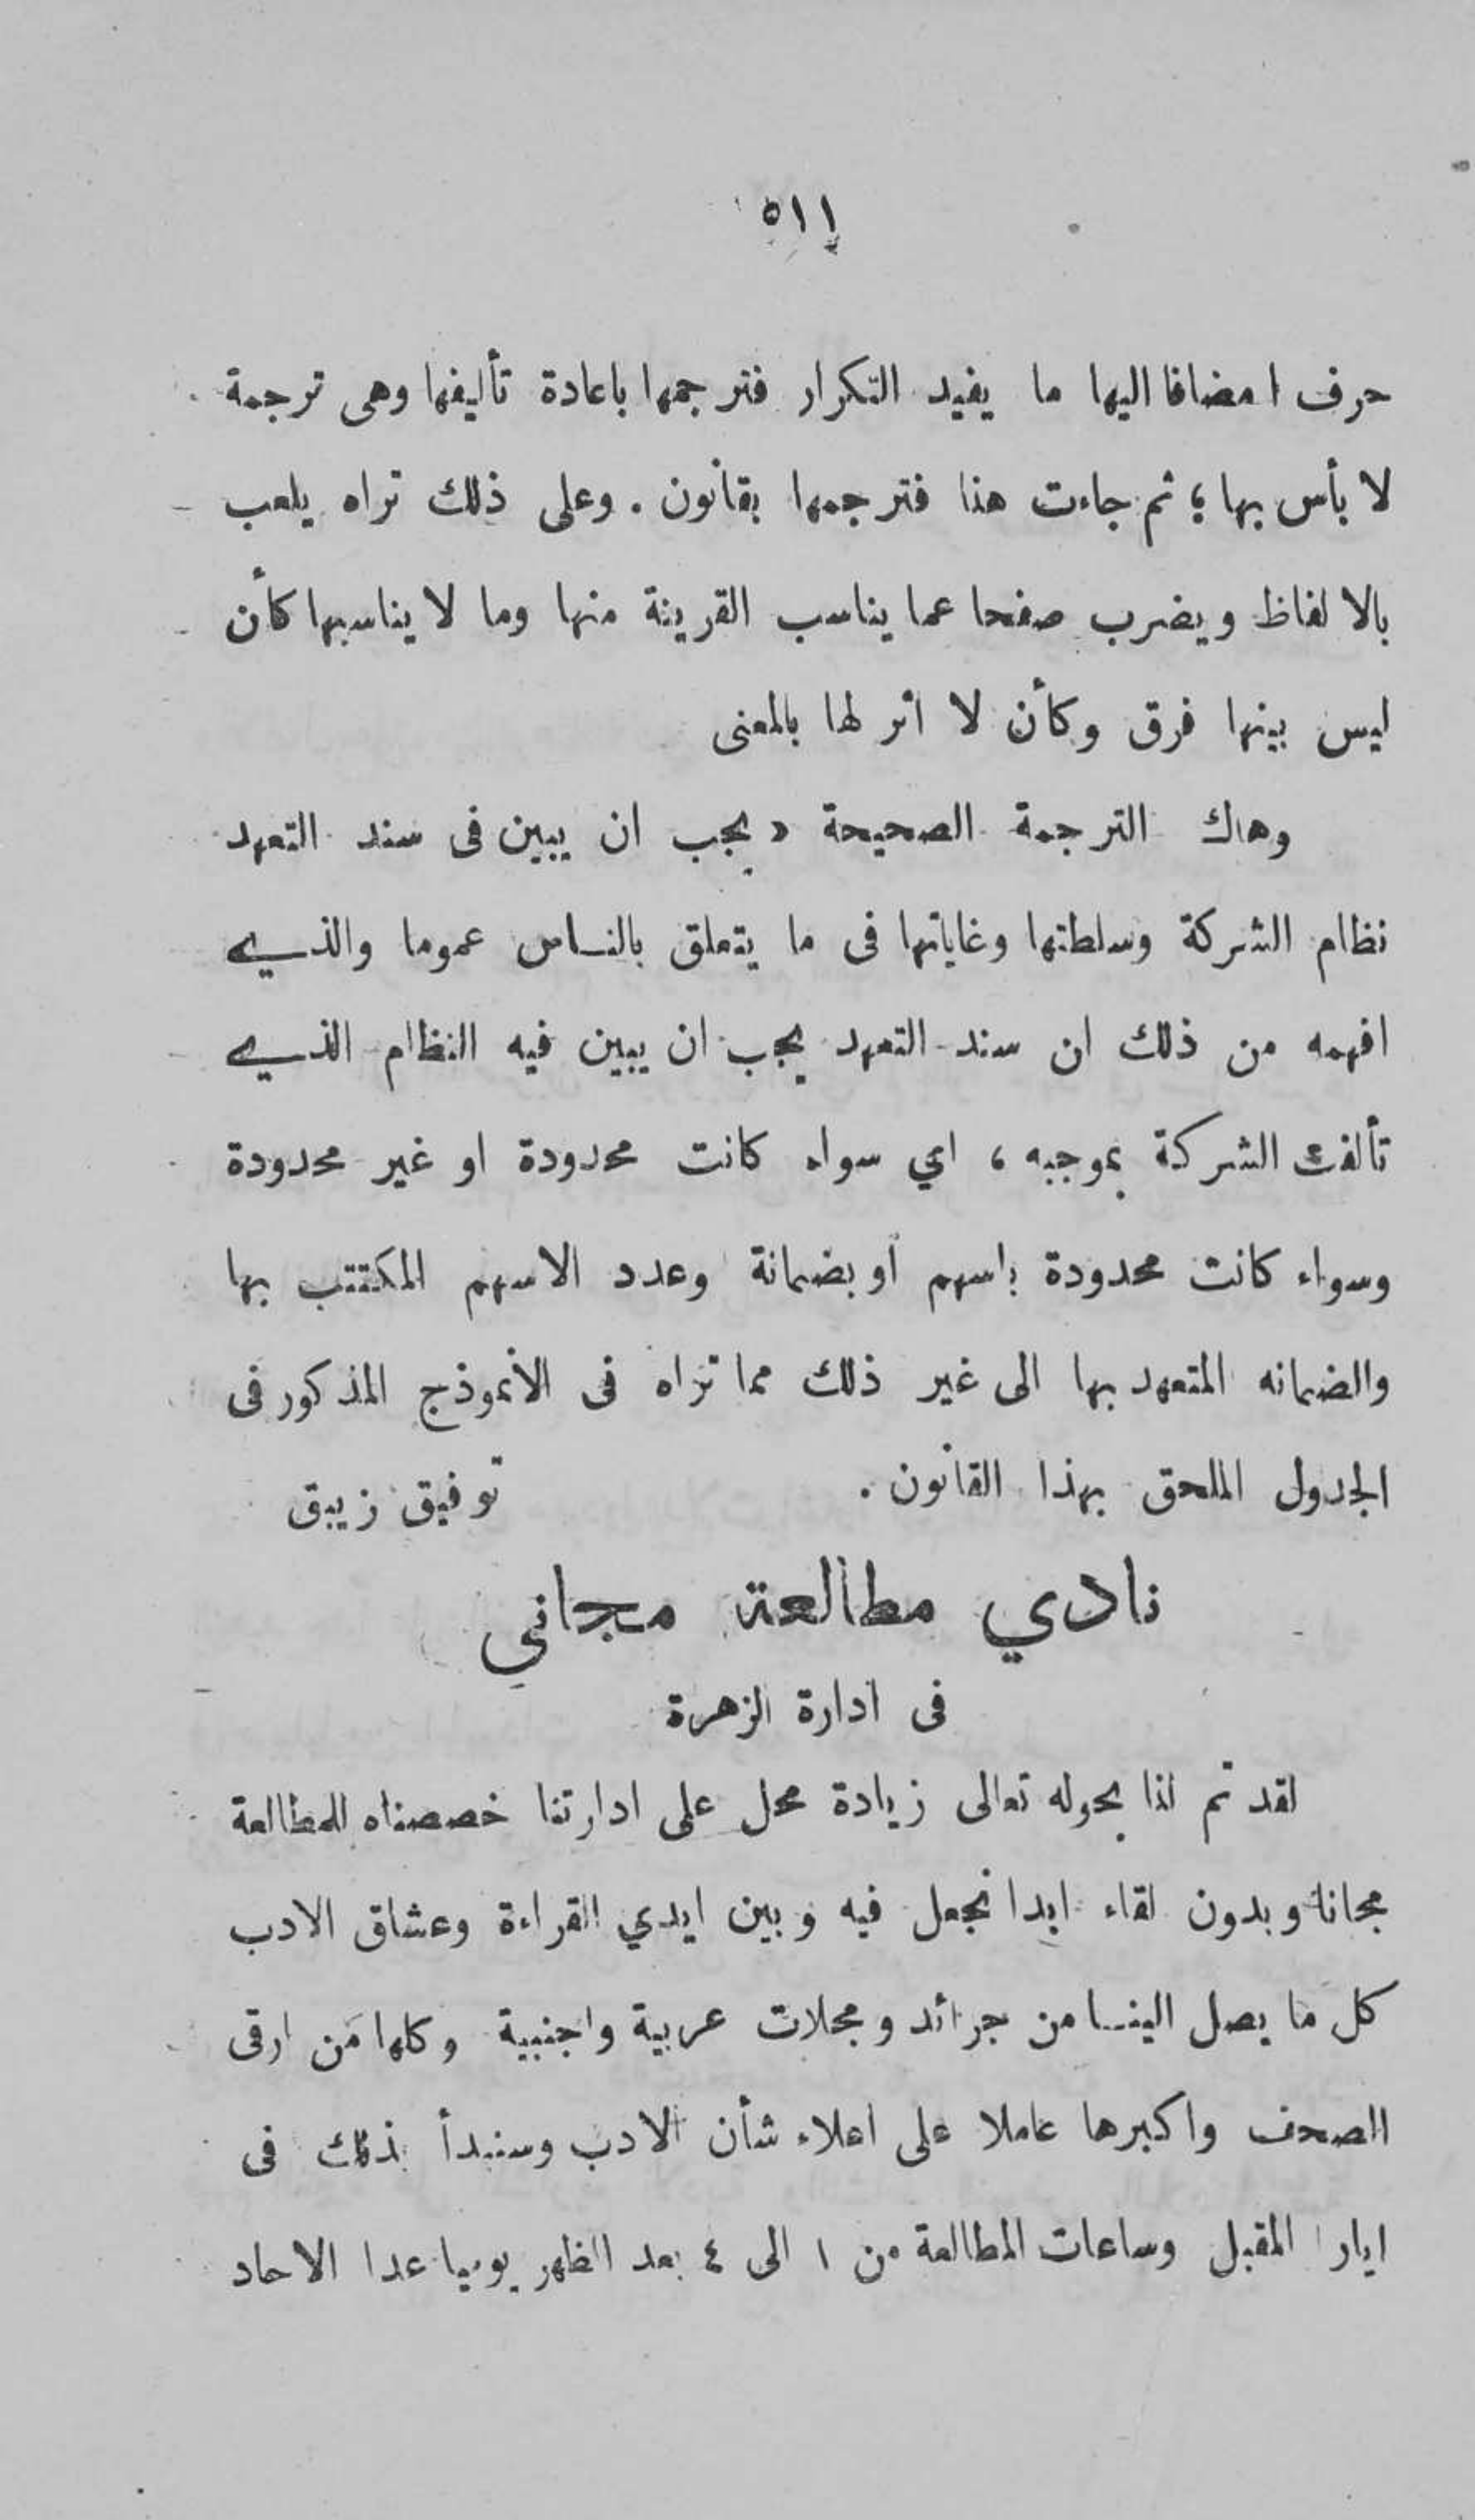 ٥١١
حرف ا مضافا اليها ما يفيد التكرار فترجمها باعادة تأليفها وهى ترجمة
لا بأس بها ؛ ثم جاءت هنا فترجمها بقانون . وعلى ذلك تراه يلعب
بالالفاظ ويضرب صفحا عما يناسب القرينة منها وما لا يناسبها كأن
ليس بينها فرق وكأن لا اثر لها بالمعنى
وهاك الترجمة الصحيحة « يجب ان يبين فى سند التعهد
نظام الشركة وسلطتها وغاياتها فى ما يتعلق بالناس عموما والذي
افهمه من ذلك ان سند التعهد يجب ان يبين فيه النظام الذي
تألفت الشركة بموجبه ، اي سواء كانت محدودة او غير محدودة
وسواء كانت محدودة باسهم او بضمانة وعدد الاسهم المكتتب بها
والضمانه المتعهد بها الى غير ذلك مما تراه فى الانموذج المذكور فى
الجدول الملحق بهذا القانون . توفيق زيبق
نادي مطالعة مجاني
فى ادارة الزهرة
لقد تم لنا بحوله تعالى زيادة محل على ادارتنا خصصناه للمطالعة
مجانا وبدون لقاء ابدا نجعل فيه وبين ايدي القراءة وعشاق الادب
كل ما يصل الينا من جرائد ومجلات عربية واجنبية وكلها من ارقى
الصحف واكبرها عاملا على اعلاء شأن الادب وسنبدأ بذلك فى
ايار المقبل وساعات المطالعة من ١ الى ٤ بعد الظهر يوميا عدا الاحاد